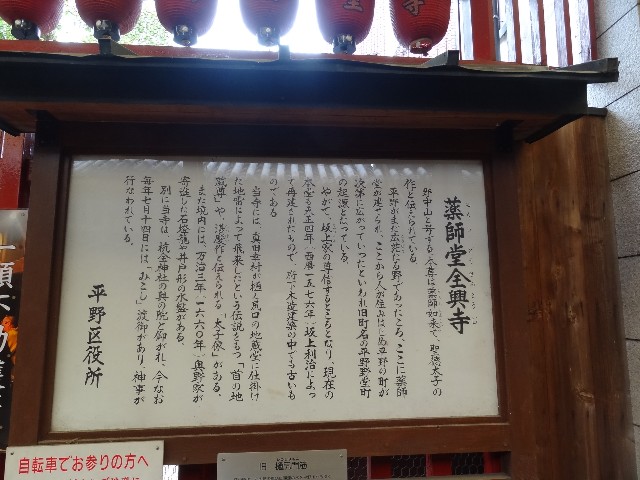 薬師堂全興寺
野中山と号する。本尊は薬師如来で、聖徳太子の
作と伝えられている。
平野がまだ広茫たる野であったころ、ここに薬師
堂が建てられ、ここから人が住みはじめ平野の町が
次第に広がっていったといわれ旧町名の平野野堂町
の起源となっている。
やがて、坂上家の尊信するところとなり、現在の
本堂も天正四年（西暦一五七六年）坂上利治によっ
て再建されたもので、府下木造建築の中でも古いも
のである。
当寺には、真田幸村が樋ノ尻口の地蔵堂に仕掛け
た地雷によって飛来したという伝説をもつ「首の地
蔵尊」や、と伝えられる「太子像」がある。
また境内には、万治三年（一六六〇年）奥野家が
寄進した石燈籠や井戸形の水盤がある。
別に当寺は、杭全神社の奥の院と仰がれ、今なお
毎年七月十四日には「みこし」渡御があり、神事が
行なわれている。
平野区役所
自転車でお参りの方へ
旧 樋尻門